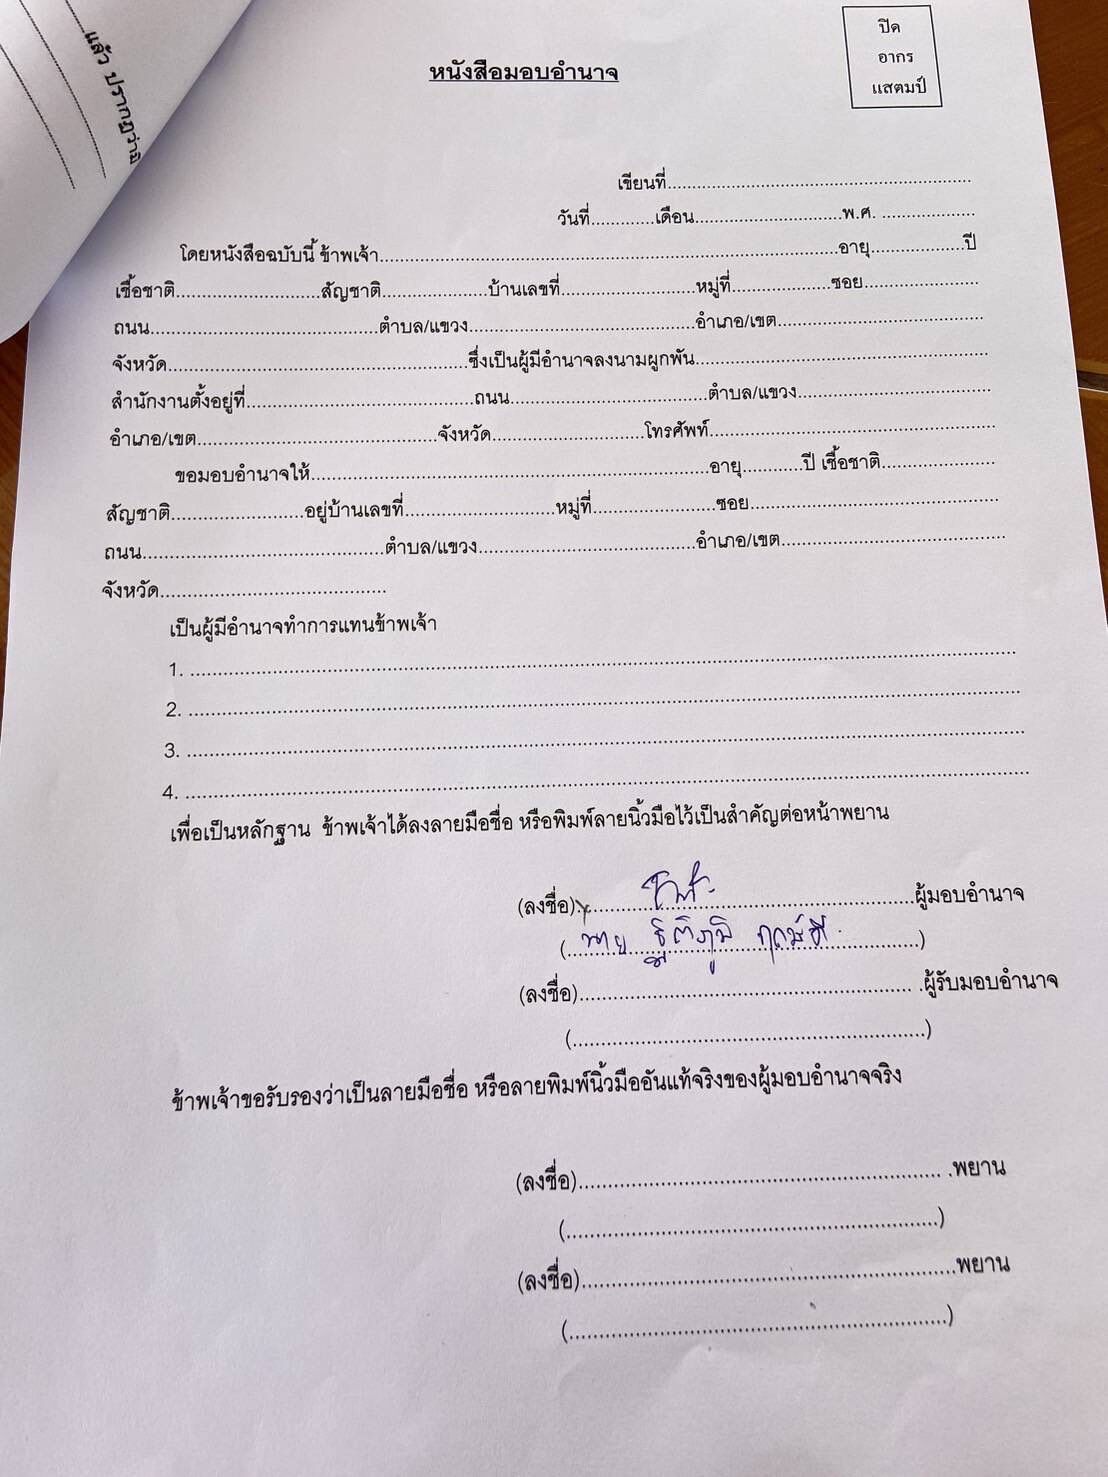 แล้ว ปรากฏว่ามี
ปิด
อากร
แสตมป์
หนังสือมอบอำนาจ
เขียนที่..........
วันที่..........เดือน..........พ.ศ. ..........
โดยหนังสือฉบับนี้ ข้าพเจ้า..........อายุ..........ปี
เชื้อชาติ..........สัญชาติ..........บ้านเลขที่..........หมู่ที่..........ซอย..........
ถนน..........ตำบล/แขวง..........อำเภอ/เขต..........
จังหวัด..........ซึ่งเป็นผู้มีอำนาจลงนามผูกพัน..........
สำนักงานตั้งอยู่ที่..........ถนน..........ตำบล/แขวง..........
อำเภอ/เขต..........จังหวัด..........โทรศัพท์..........
ขอมอบอำนาจให้..........อายุ..........ปี เชื้อชาติ..........
สัญชาติ..........อยู่บ้านเลขที่..........หมู่ที่..........ซอย..........
ถนน..........ตำบล/แขวง..........อำเภอ/เขต..........
จังหวัด..........
เป็นผู้มีอำนาจทำการแทนข้าพเจ้า
1. ..........
2. ..........
3. ..........
4. ..........
เพื่อเป็นหลักฐาน ข้าพเจ้าได้ลงลายมือชื่อ หรือพิมพ์ลายนิ้วมือไว้เป็นสำคัญต่อหน้าพยาน
(ลงชื่อ)..........ผู้มอบอำนาจ
(นาย ฐิติภูมิ ..........)
(ลงชื่อ).......... .ผู้รับมอบอำนาจ
(..........)
ข้าพเจ้าขอรับรองว่าเป็นลายมือชื่อ หรือลายพิมพ์นิ้วมืออันแท้จริงของผู้มอบอำนาจจริง
(ลงชื่อ).......... .พยาน
(..........)
(ลงชื่อ)..........พยาน
(..........)